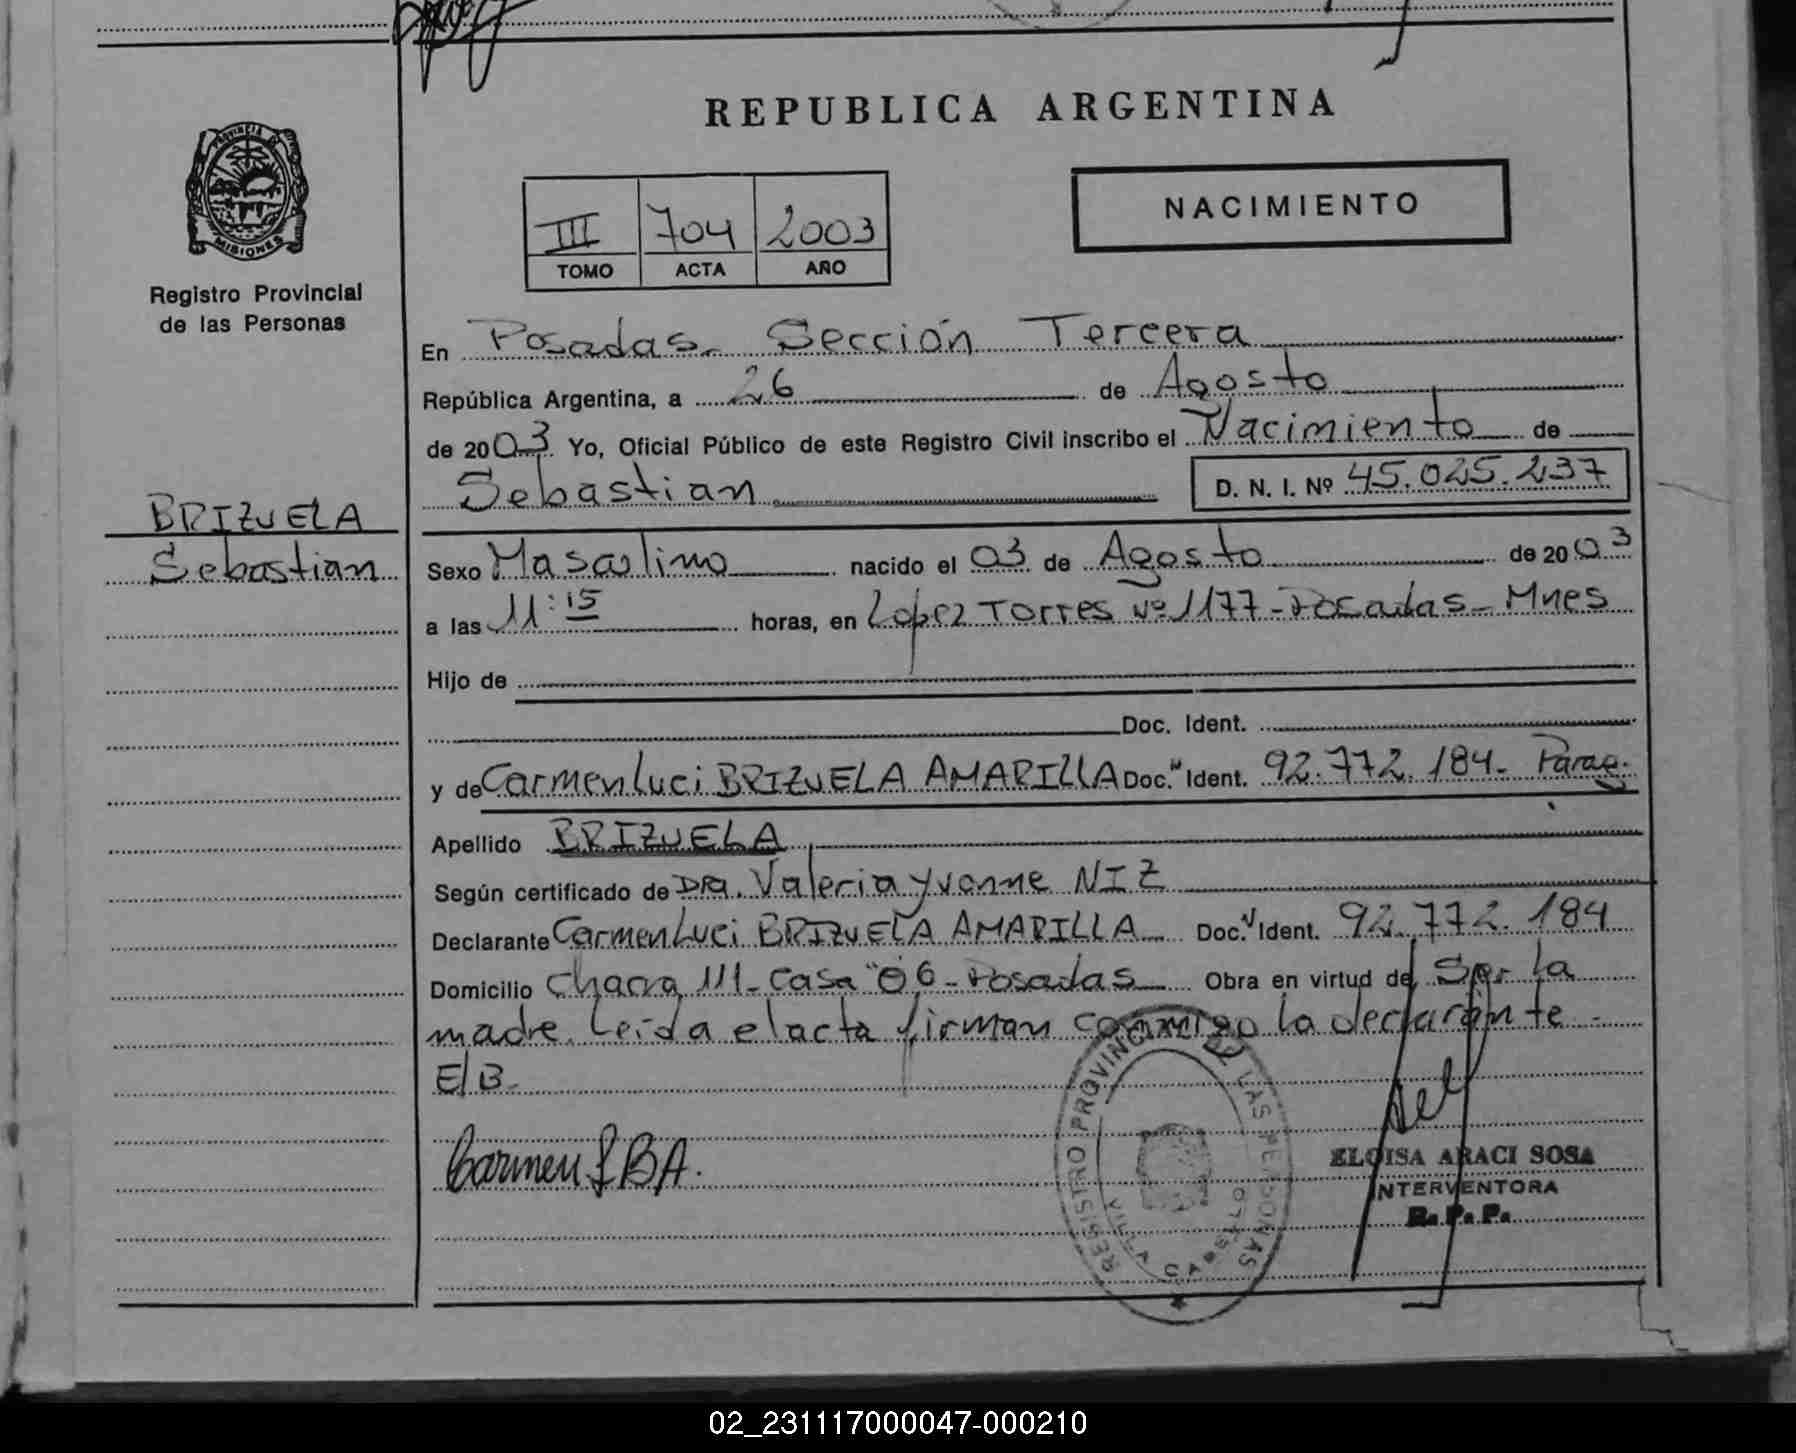 REPUBLICA ARGENTINA
PROVINCIA DE
MISIONES
Registro Provincial
de las Personas
III 704 2003
TOMO ACTA AÑO
NACIMIENTO
En Posadas. Sección Tercera
República Argentina, a 26 de Agosto
de 2003. Yo, Oficial Público de este Registro Civil inscribo el Nacimiento de
Sebastian D. N. I. Nº 45.025.237
BRIZUELA
Sebastian
Sexo Masculino nacido el 03 de Agosto de 2003
a las 11:15 horas, en Lopez Torres Nº 1177 - Posadas - Mnes
Hijo de
Doc. Ident.
y de Carmen Luci BRIZUELA AMARILLA Doc. Ident. 92.772.184. Parag.
Apellido BRIZUELA
Según certificado de Dra. Valeria Yvonne NIZ
Declarante Carmen Luci BRIZUELA AMARILLA Doc. Ident. 92.772.184
Domicilio Chacra 111 - Casa 06 - Posadas Obra en virtud de Ser la
madre. Leida el acta firman conmigo la declarante -
E/B.
Carmen L BA.
REGISTRO PROVINCIAL DE LAS PERSONAS
VILLA CABELLO
ELOISA ARACI SOSA
INTERVENTORA
R. P. P.
02_231117000047-000210